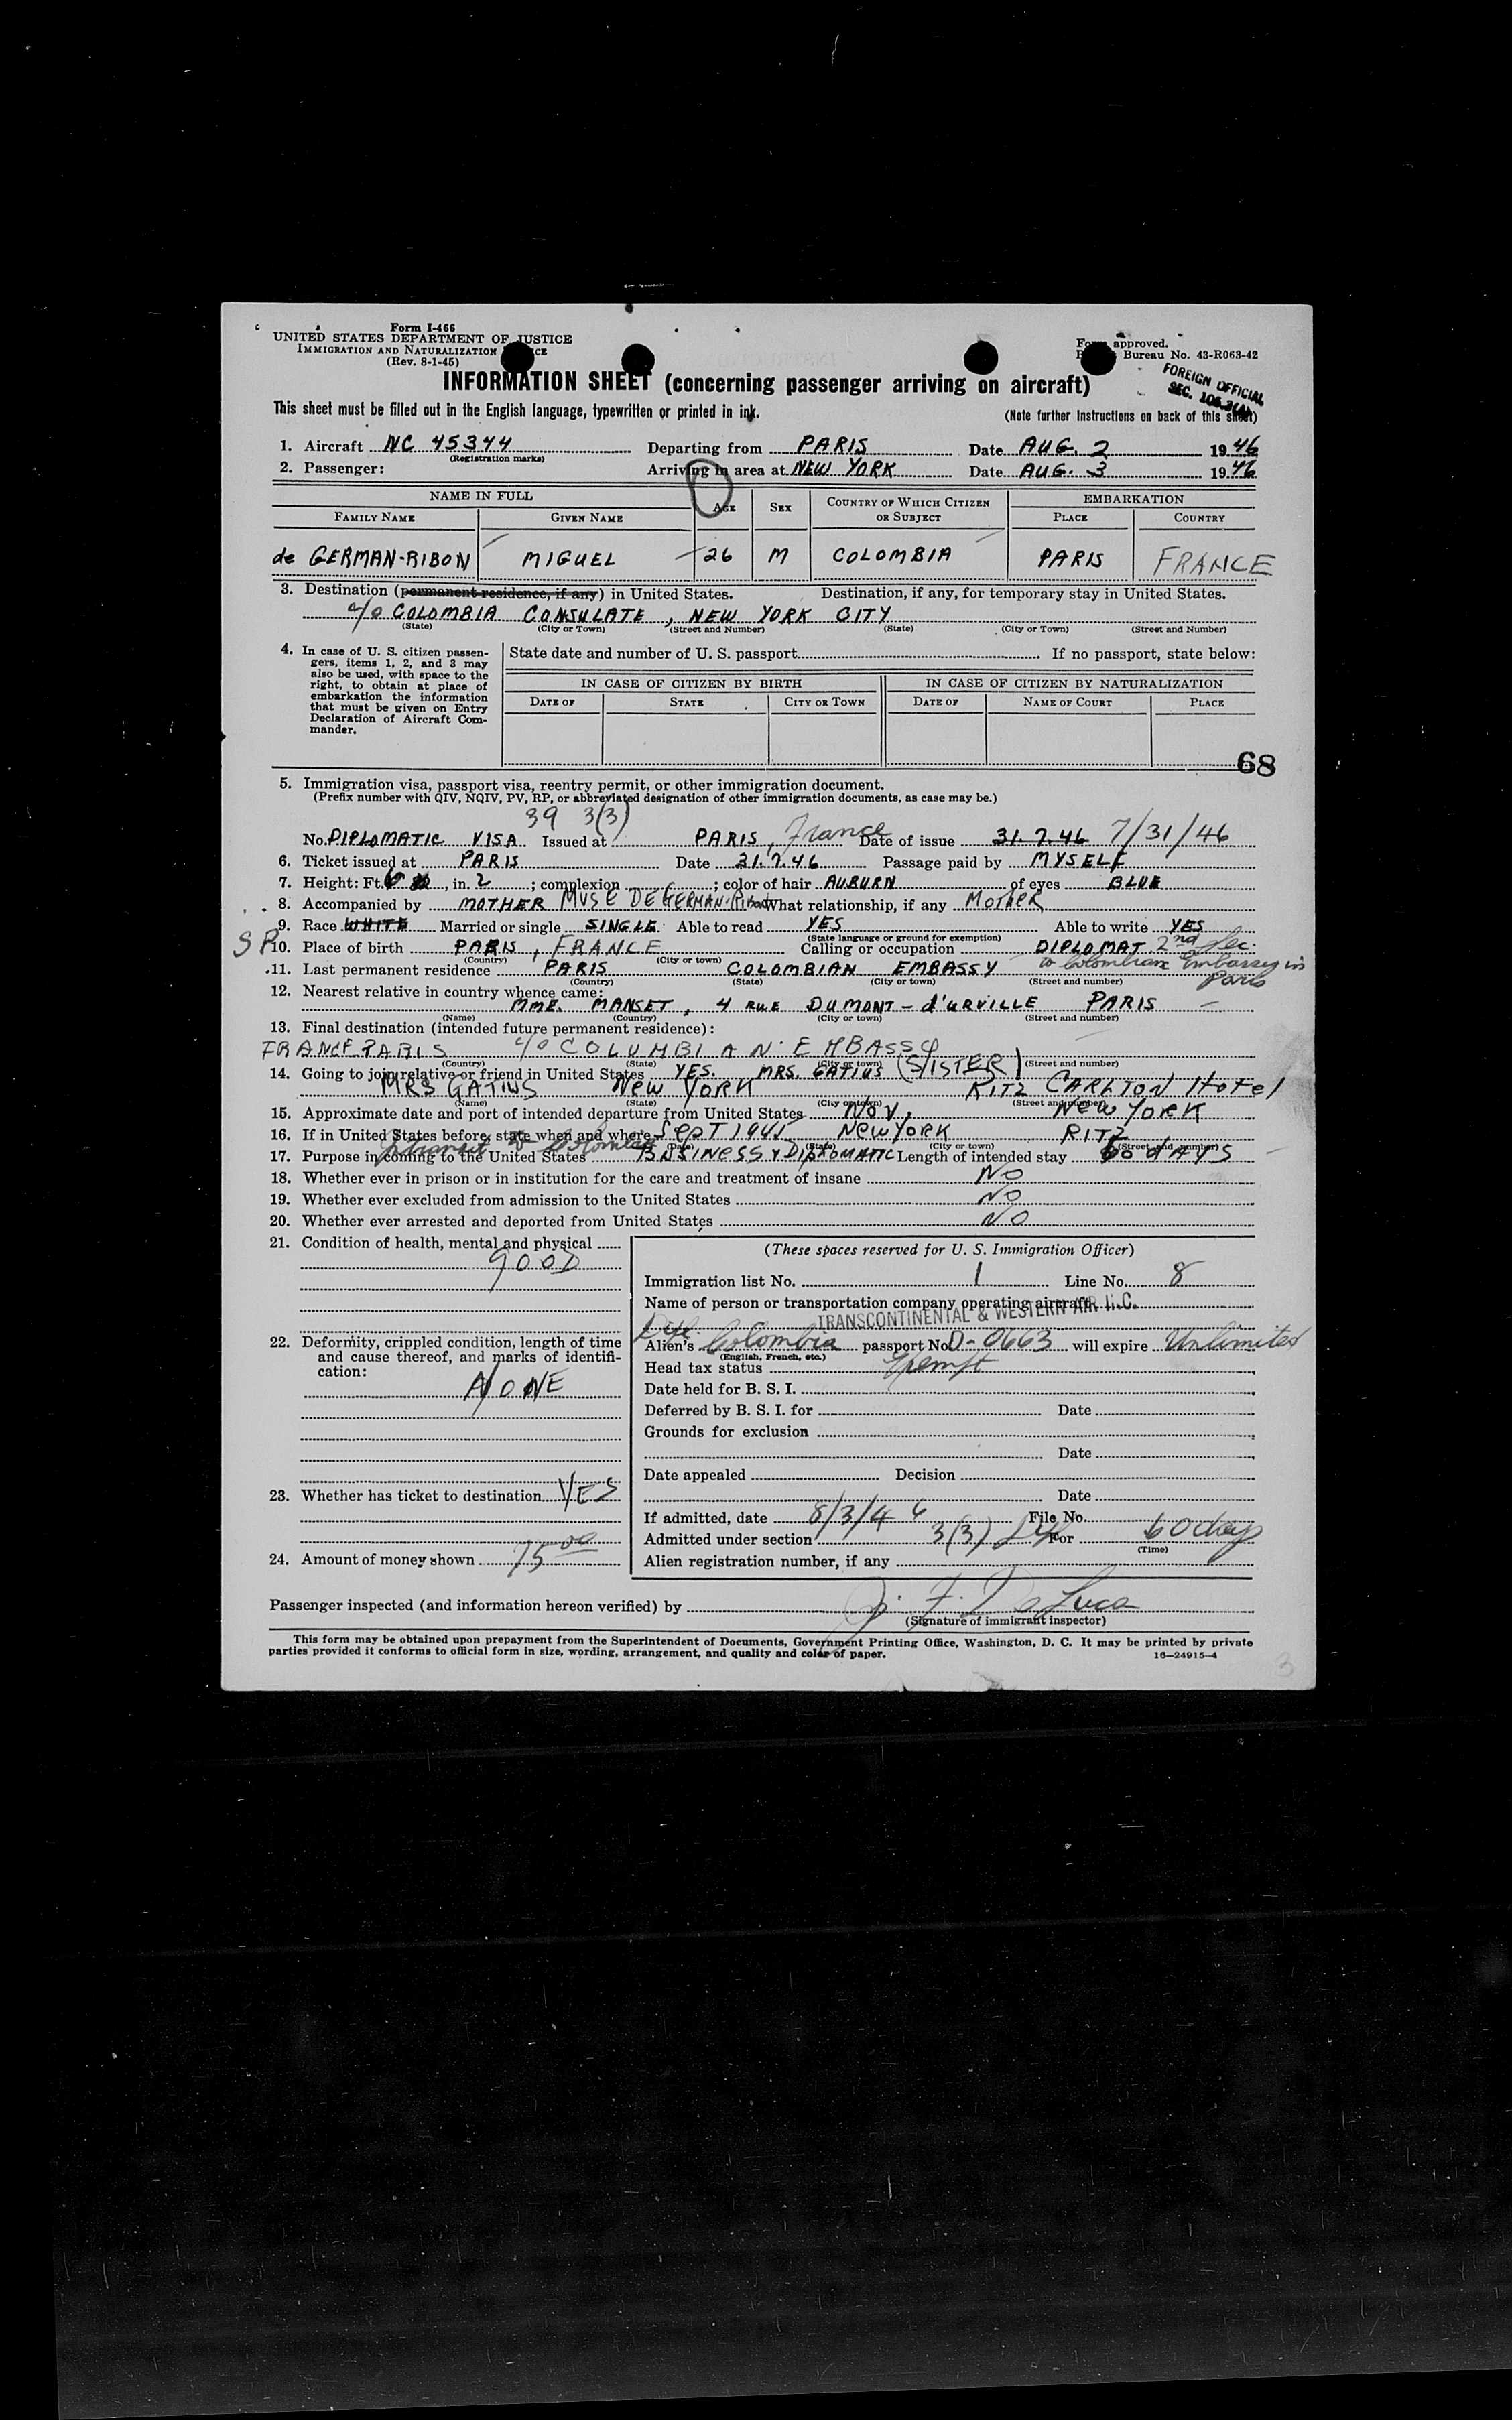 Form I-466
UNITED STATES DEPARTMENT OF JUSTICE
IMMIGRATION AND NATURALIZATION
(Rev. 8-1-45)
approved.
Bureau No. 43-R063-42
FOREIGN OFFICIAL
INFORMATION SHEET (concerning passenger arriving on aircraft)
This sheet must be filled out in the English language, typewritten or printed in ink.
(Note further instructions on back of this sheet)
1. Aircraft NC 45344 Departing from PARIS Date AUG. 2 1946
(Registration marks)
2. Passenger: Arriving in area at NEW YORK Date AUG. 3 1946
NAME IN FULL AGE SEX COUNTRY OF WHICH CITIZEN OR SUBJECT EMBARKATION
FAMILY NAME GIVEN NAME PLACE COUNTRY
de GERMAN-RIBON MIGUEL 26 M COLOMBIA PARIS FRANCE
3. Destination (permanent residence, if any) in United States. Destination, if any, for temporary stay in United States.
c/o COLOMBIA CONSULATE, NEW YORK CITY
(State) (City or Town) (Street and Number) (State) (City or Town) (Street and Number)
4. In case of U. S. citizen passen-
gers, items 1, 2, and 3 may
also be used, with space to the
right, to obtain at place of
embarkation the information
that must be given on Entry
Declaration of Aircraft Com-
mander.
State date and number of U. S. passport If no passport, state below:
IN CASE OF CITIZEN BY BIRTH IN CASE OF CITIZEN BY NATURALIZATION
DATE OF STATE CITY OR TOWN DATE OF NAME OF COURT PLACE
68
5. Immigration visa, passport visa, reentry permit, or other immigration document.
(Prefix number with QIV, NQIV, PV, RP, or abbreviated designation of other immigration documents, as case may be.)
39 3(3)
No. DIPLOMATIC VISA Issued at PARIS, France Date of issue 31.7.46 7/31/46
6. Ticket issued at PARIS Date 31.7.46 Passage paid by MYSELF
7. Height: Ft. 6, in. 2; complexion ; color of hair AUBURN of eyes BLUE
8. Accompanied by MOTHER MUSE DE GERMAN-Ribon What relationship, if any Mother
9. Race WHITE Married or single SINGLE Able to read YES Able to write YES
(State language or ground for exemption)
SP
10. Place of birth PARIS, FRANCE Calling or occupation DIPLOMAT 2nd Sec.
(Country) (City or town)
to Colombian Embassy in Paris
11. Last permanent residence PARIS COLOMBIAN EMBASSY
(Country) (State) (City or town) (Street and number)
12. Nearest relative in country whence came:
MME. MANSET, 4 RUE DUMONT-d'URVILLE PARIS
(Name) (Country) (City or town) (Street and number)
13. Final destination (intended future permanent residence):
FRANCE PARIS c/o COLUMBIAN EMBASSY
(Country) (State) (City or town) (Street and number)
14. Going to join relative or friend in United States YES. MRS. GATIUS (SISTER)
MRS GATIUS NEW YORK RITZ CARLTON Hotel
(Name) (State) (City or town) (Street and number)
15. Approximate date and port of intended departure from United States Nov, NEW YORK
16. If in United States before, state when and where Sept 1945 NEW YORK RITZ
(Date) (State) (City or town) (Street and number)
Intransit to Colombia
17. Purpose in coming to the United States BUSINESS & DIPLOMATIC Length of intended stay 60 dAYS
18. Whether ever in prison or in institution for the care and treatment of insane NO
19. Whether ever excluded from admission to the United States NO
20. Whether ever arrested and deported from United States NO
21. Condition of health, mental and physical
GOOD
22. Deformity, crippled condition, length of time
and cause thereof, and marks of identifi-
cation:
NONE
23. Whether has ticket to destination YES
24. Amount of money shown 75.00
(These spaces reserved for U. S. Immigration Officer)
Immigration list No. 1 Line No. 8
Name of person or transportation company operating aircraft
TRANSCONTINENTAL & WESTERN AIR INC.
Dipl.
Alien's Colombia passport No. D-0663 will expire Unlimited
(English, French, etc.)
Head tax status Exempt
Date held for B. S. I.
Deferred by B. S. I. for Date
Grounds for exclusion
Date
Date appealed Decision
Date
If admitted, date 8/3/46 File No.
Admitted under section 3(3) For 60 days
(Time)
Alien registration number, if any
Passenger inspected (and information hereon verified) by J. F. DeLuca
(Signature of immigrant inspector)
This form may be obtained upon prepayment from the Superintendent of Documents, Government Printing Office, Washington, D. C. It may be printed by private
parties provided it conforms to official form in size, wording, arrangement, and quality and color of paper.
16—24915-4
3